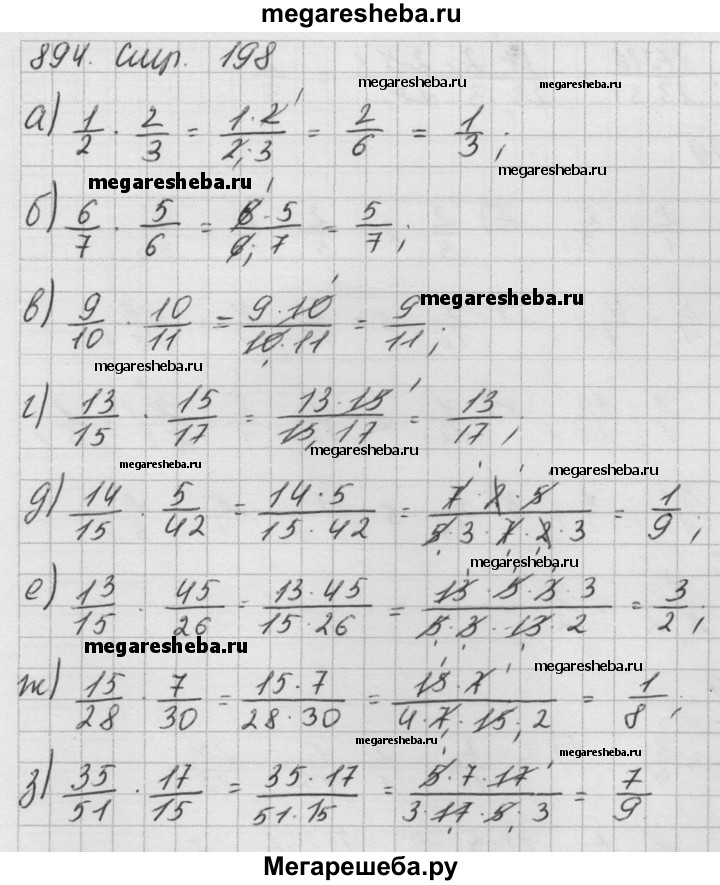 megaresheba.ru
894. Стр. 198
megaresheba.ru megaresheba.ru
а) 1/2 · 2/3 = 1·2/2·3 = 2/6 = 1/3;
megaresheba.ru
megaresheba.ru
б) 6/7 · 5/6 = 6·5/6·7 = 5/7;
megaresheba.ru
в) 9/10 · 10/11 = 9·10/10·11 = 9/11;
megaresheba.ru
г) 13/15 · 15/17 = 13·15/15·17 = 13/17;
megaresheba.ru
megaresheba.ru
megaresheba.ru
д) 14/15 · 5/42 = 14·5/15·42 = 7·2·5/5·3·7·2·3 = 1/9;
megaresheba.ru
е) 13/15 · 45/26 = 13·45/15·26 = 13·5·3·3/5·3·13·2 = 3/2;
megaresheba.ru
megaresheba.ru
ж) 15/28 · 7/30 = 15·7/28·30 = 15·7/4·7·15·2 = 1/8;
megaresheba.ru
megaresheba.ru
з) 35/51 · 17/15 = 35·17/51·15 = 5·7·17/3·17·5·3 = 7/9
Мегарешеба.ру